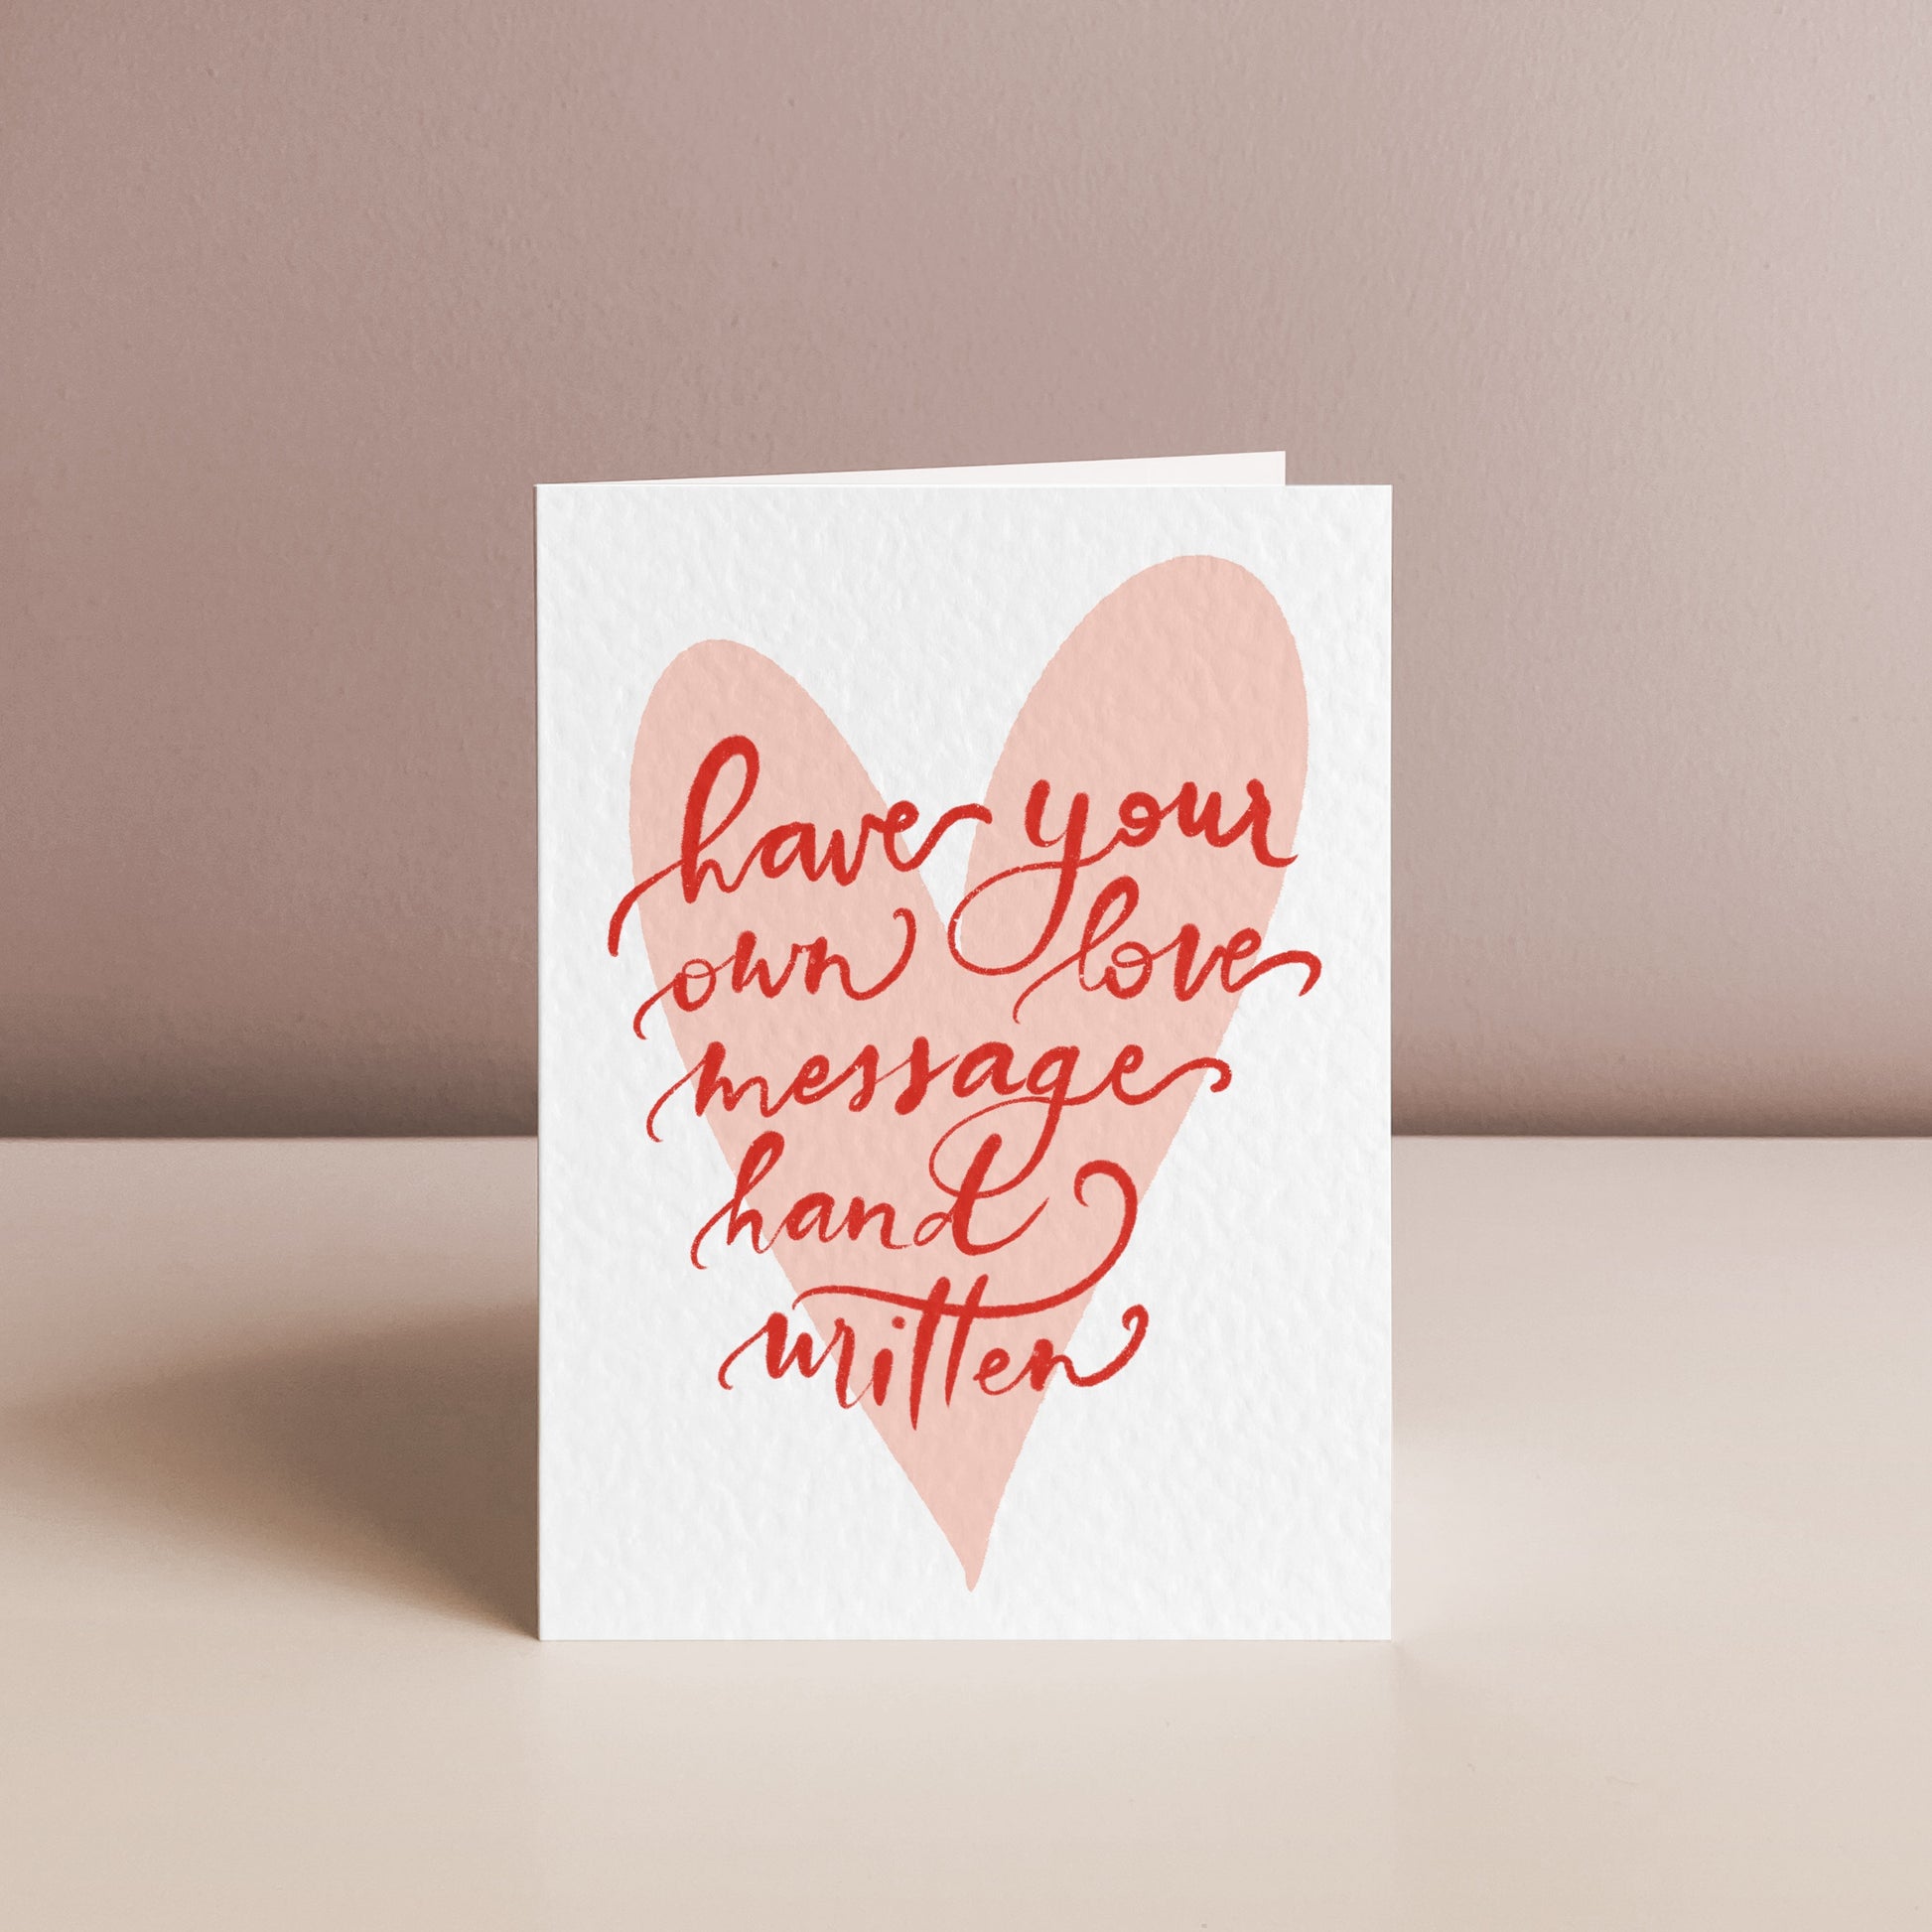 have your
own love
message
hand
written